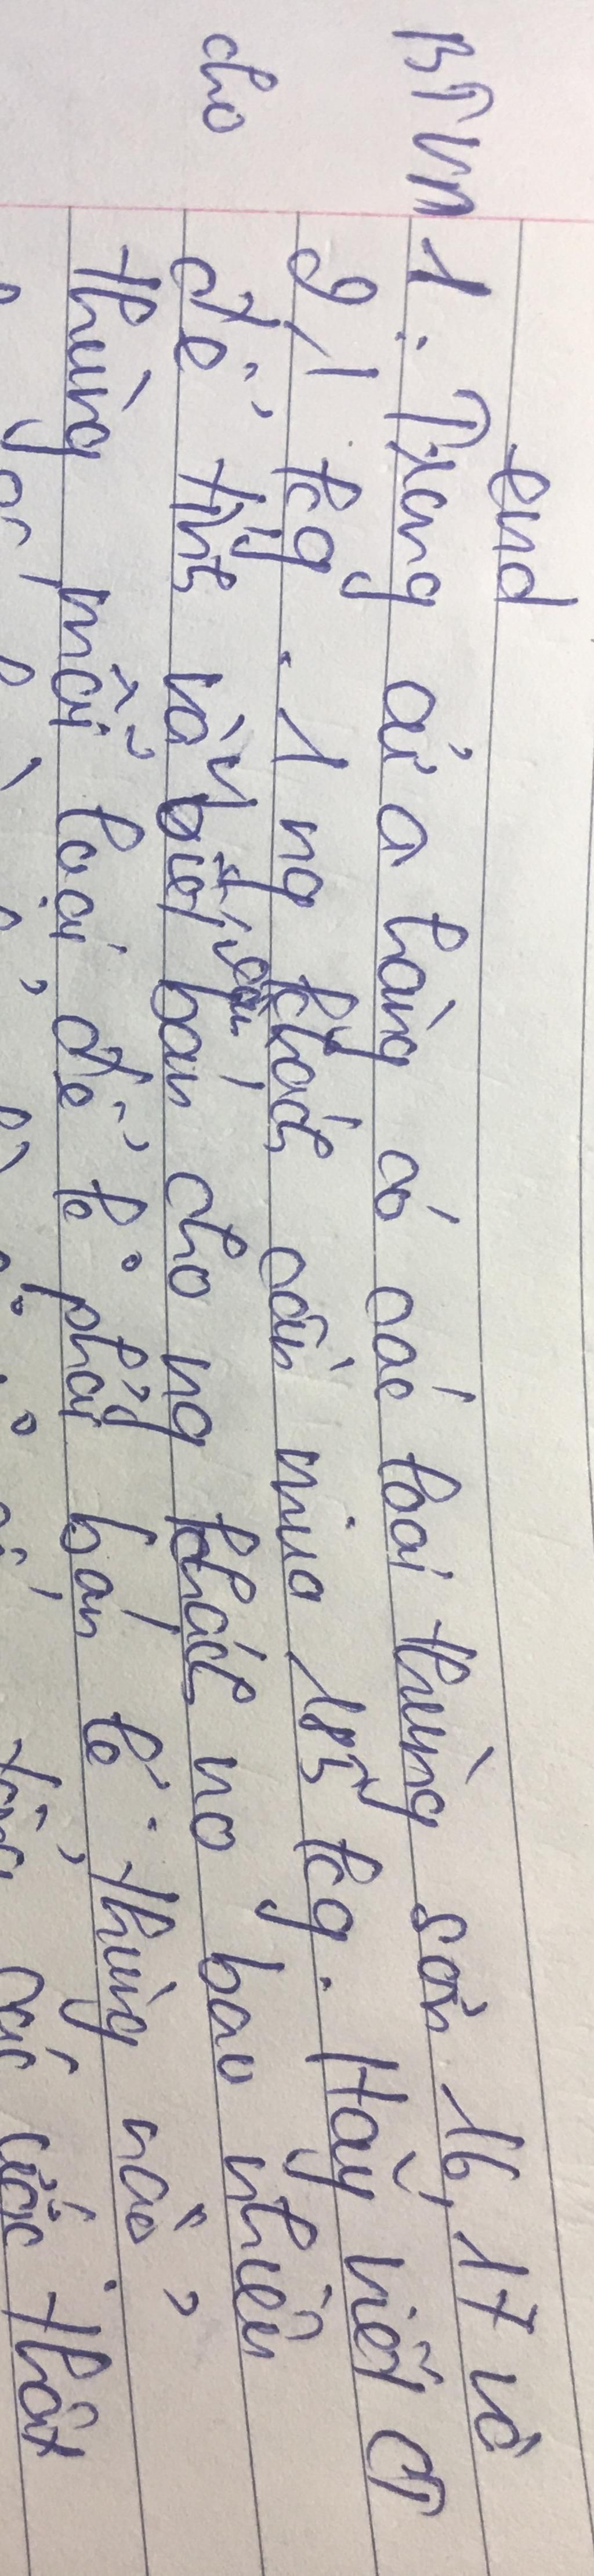 end
BTVN 1: Trong cửa hàng có các loại thùng sơn 16, 17 và
21 kg. 1 ng khác cần mua 185 kg. Hãy viết CT
cho để tính và biết cần bán cho ng khác no bao nhiêu
thùng mỗi loại, để k phải bán lẻ thùng nào,